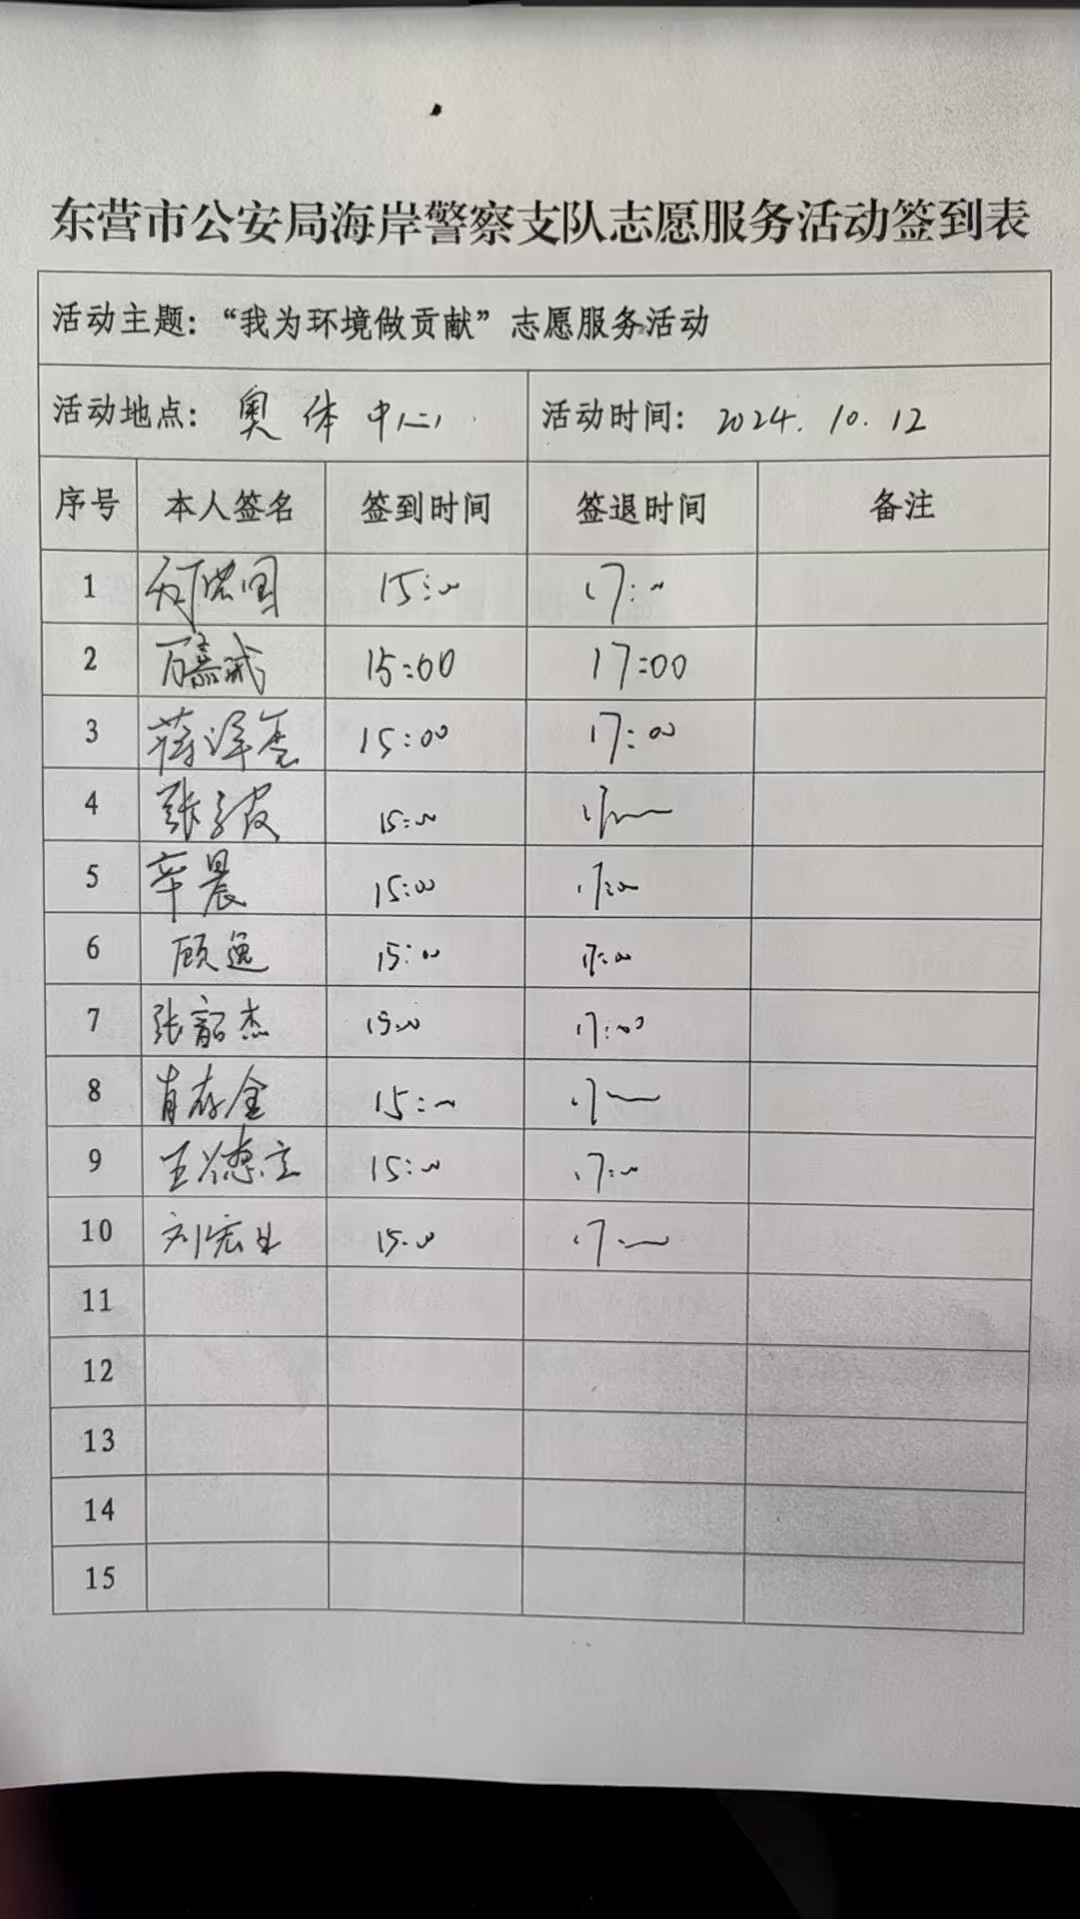 东营市公安局海岸警察支队志愿服务活动签到表
活动主题：“我为环境做贡献”志愿服务活动
活动地点：奥体中心 活动时间：2024.10.12
序号 本人签名 签到时间 签退时间 备注
1 15:00 17:00
2 15:00 17:00
3 15:00 17:00
4 15:00 17:00
5 辛晨 15:00 17:00
6 顾逸 15:00 17:00
7 张韶杰 15:00 17:00
8 肖存金 15:00 17:00
9 15:00 17:00
10 15:00 17:00
11
12
13
14
15